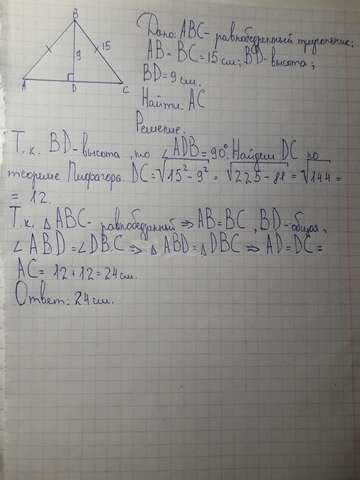 B
15
9
A
D
C
Дано: ABC - равнобедренный треугольник;
AB - BC = 15 см; BD - высота;
BD = 9 см.
Найти: AC
Решение:
Т.к. BD - высота, то ∠ADB = 90°. Найдем DC по
теореме Пифагора. DC = √15² - 9² = √225 - 81 = √144 =
= 12.
Т.к. △ABC - равнобедренный ⇒ AB = BC, BD - общая,
∠ABD = ∠DBC ⇒ △ABD = △DBC ⇒ AD = DC =
AC = 12 + 12 = 24 см.
Ответ: 24 см.